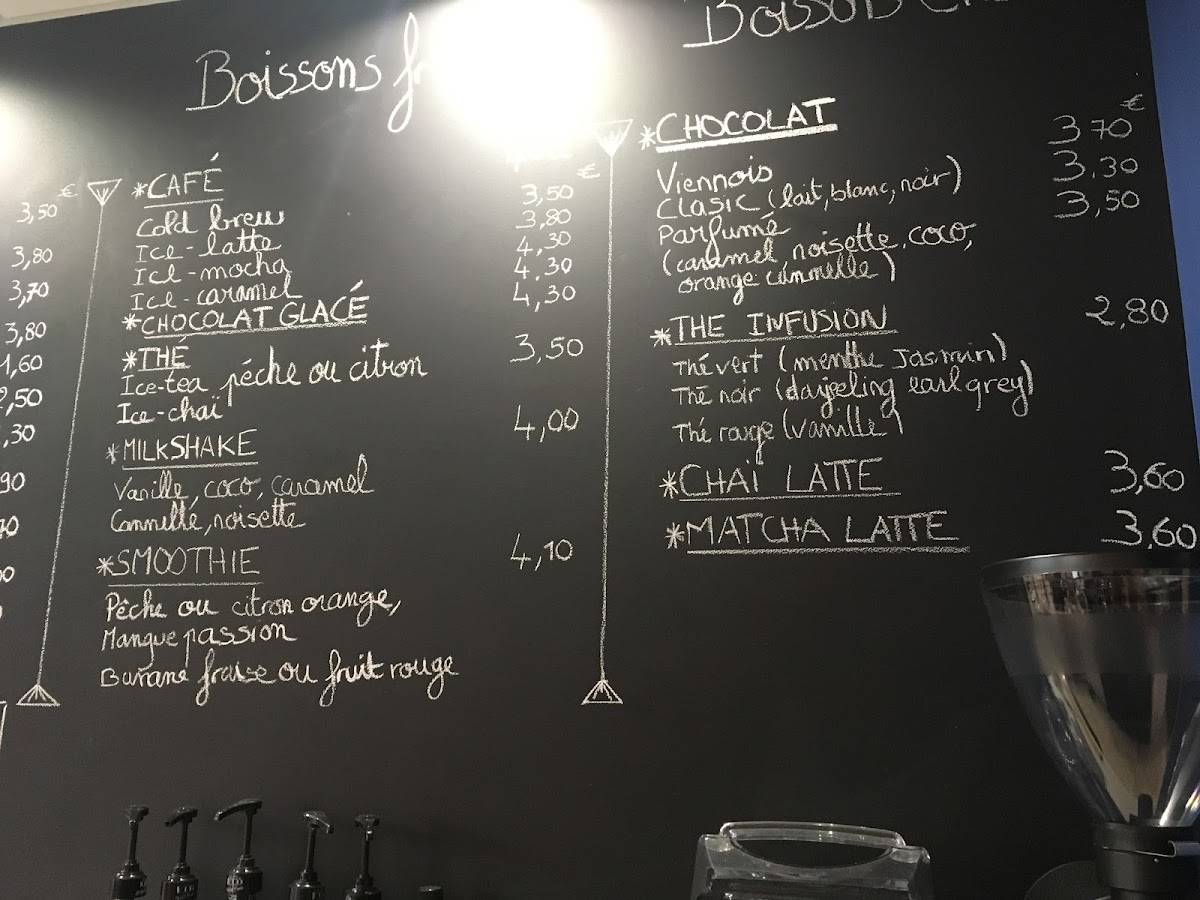 Boissons
€
3,50
3,80
3,70
3,80
1,60
,50
,30
90
*CAFÉ
€
Cold brew 3,50
Ice-latte 3,80
Ice-mocha 4,30
Ice-caramel 4.30
*CHOCOLAT GLACÉ 4,30
*THÉ
Ice-tea péche ou citron 3,50
Ice-chaï
*MILKSHAKE 4,00
Vanille, coco, caramel
Cannelle, noisette
*SMOOTHIE 4,10
Pêche ou citron orange,
Mangue passion
Banane fraise ou fruit rouge
Boisson
*CHOCOLAT €
Viennois 3 70
Clasic (lait, blanc, noir) 3.30
Parfumé 3,50
(caramel, noisette, coco,
orange cannelle)
*THE INFUSION 2,80
Thé vert (menthe Jasmin)
Thé noir (darjeeling earl grey)
Thé rouge (vanille)
*CHAÏ LATTE 3,60
*MATCHA LATTE 3,60